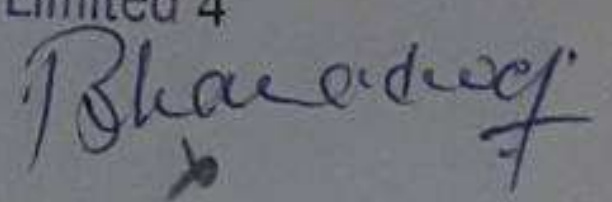 Limited 4
Bharadwaj